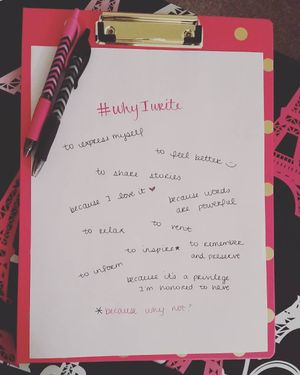 #whyIwrite
to express myself
to feel better
to share stories
because I love it ♥
because words
are powerful
to relax
to vent
to inspire★
to remember
and preserve
to inform
because it's a privilege
I'm honored to have
*because why not?